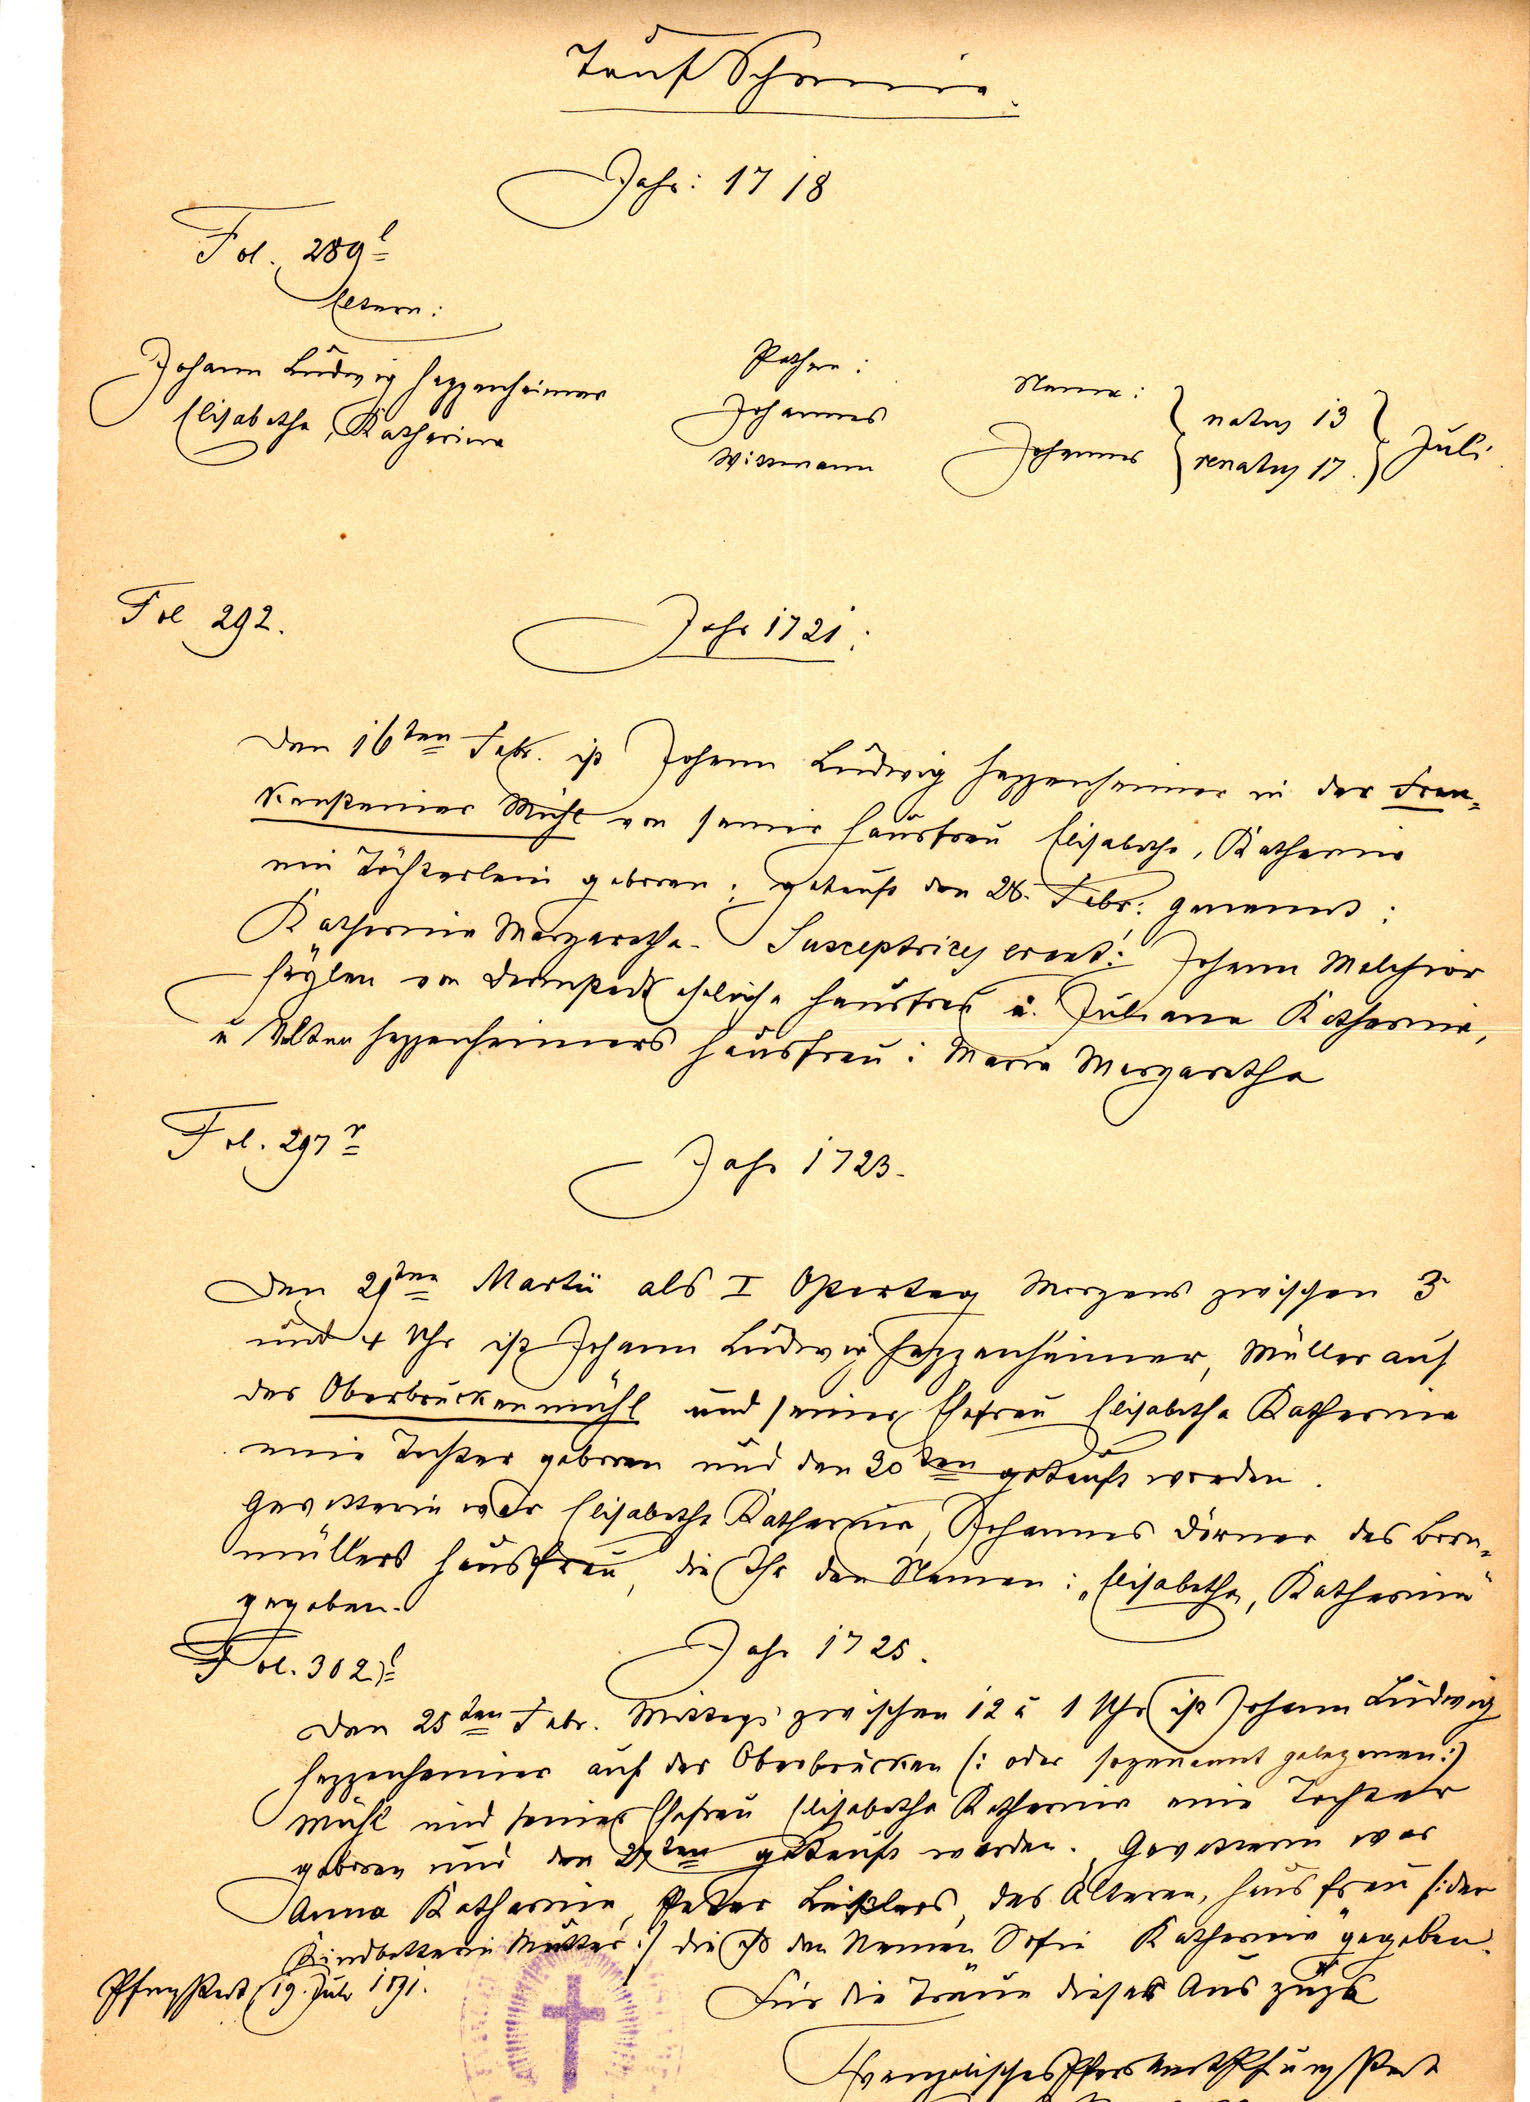 Tauf Scheine.
Jahr: 1718
Fol. 289 l
Eltern:
Johann Ludwig Heppenheimer
Elisabetha, Katharina
Pathen:
Johannes
Wissmann
Name:
Johannes
natus 13
renatus 17.
Juli
Fol 292.
Jahr 1721.
Den 16ten Febr. ist Johann Ludwig Heppenheimer in der Fran-
kensteiner Mühl von seiner Hausfrau Elisabetha, Katharina
ein Töchterlein geboren; getauft den 28. Febr: genannt:
Katharina Margaretha. Susceptrices erant: Johann Melchior
von Darmstadt eheliche Hausfrau u. Juliana Katharina,
u Velten Heppenheimers Hausfrau: Maria Margaretha
Fol. 297 r
Jahr 1723.
Den 29ten Martii als I Ostertag Morgens zwischen 3
und 4 Uhr ist Johann Ludwig Heppenheimer, Müller auf
der Oberbruckenmühl und seiner Ehefrau Elisabetha Katharina
eine Tochter geboren und den 30ten getauft worden.
Gevatterin war Elisabetha Katharina, Johannes Dörner des Born-
müllers Hausfrau, die Ihr den Namen: "Elisabetha, Katharina"
gegeben.
Fol. 302 l
Jahr 1725.
Den 25ten Febr. Mittags zwischen 12 u 1 Uhr ist Johann Ludwig
Heppenheimer auf der Oberbrucken (: oder sogenannt gelegenen:)
Mühl und seiner Ehefrau Elisabetha Katharina eine Tochter
geboren und den 27ten getauft worden. Gevatterin war
Anna Katharina, Peter Beißlers, des Älteren, Hausfrau (: der
Kindbetterin Mutter:) die ihr den Namen Sofie Katharina" gegeben.
Pfungstadt, 19. Juli 1891.
Für die Treue dieser Auszüge
Evangelisches Pfarramt Pfungstadt